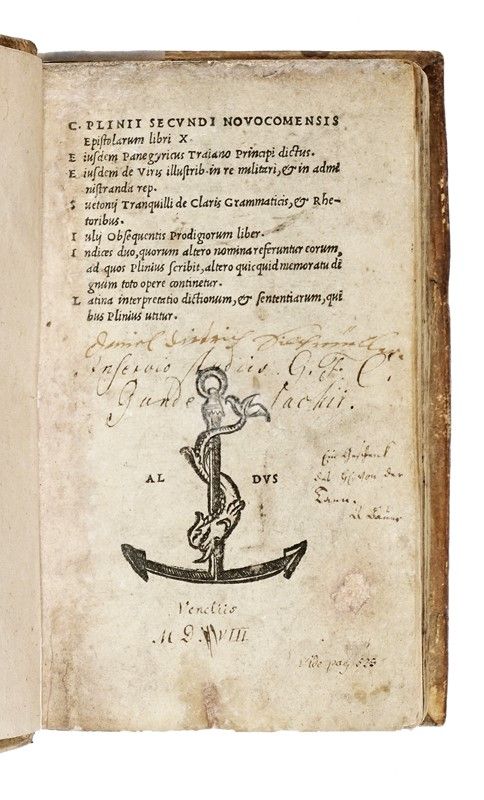 C. PLINII SECVNDI NOVOCOMENSIS
Epistolarum libri X.
E iusdem Panegyricus Traiano Principi dictus.
E iusdem de Viris illustrib. in re militari, & in admi
nistranda rep.
S uetonij Tranquilli de Claris Grammaticis, & Rhe-
toribus.
I ulij Obsequentis Prodigiorum liber.
I ndices duo, quorum altero nomina referuntur eorum,
ad quos Plinius scribit, altero quicquid memoratu di
gnum toto opere continetur.
L atina interpretatio dictionum, & sententiarum, qui
bus Plinius utitur.
Daniel
Inservio studiis G. F. C.
AL DVS
Ein Geschenk
des von der
Tann.
Venetiis
M D VIII
Vide pag. 525